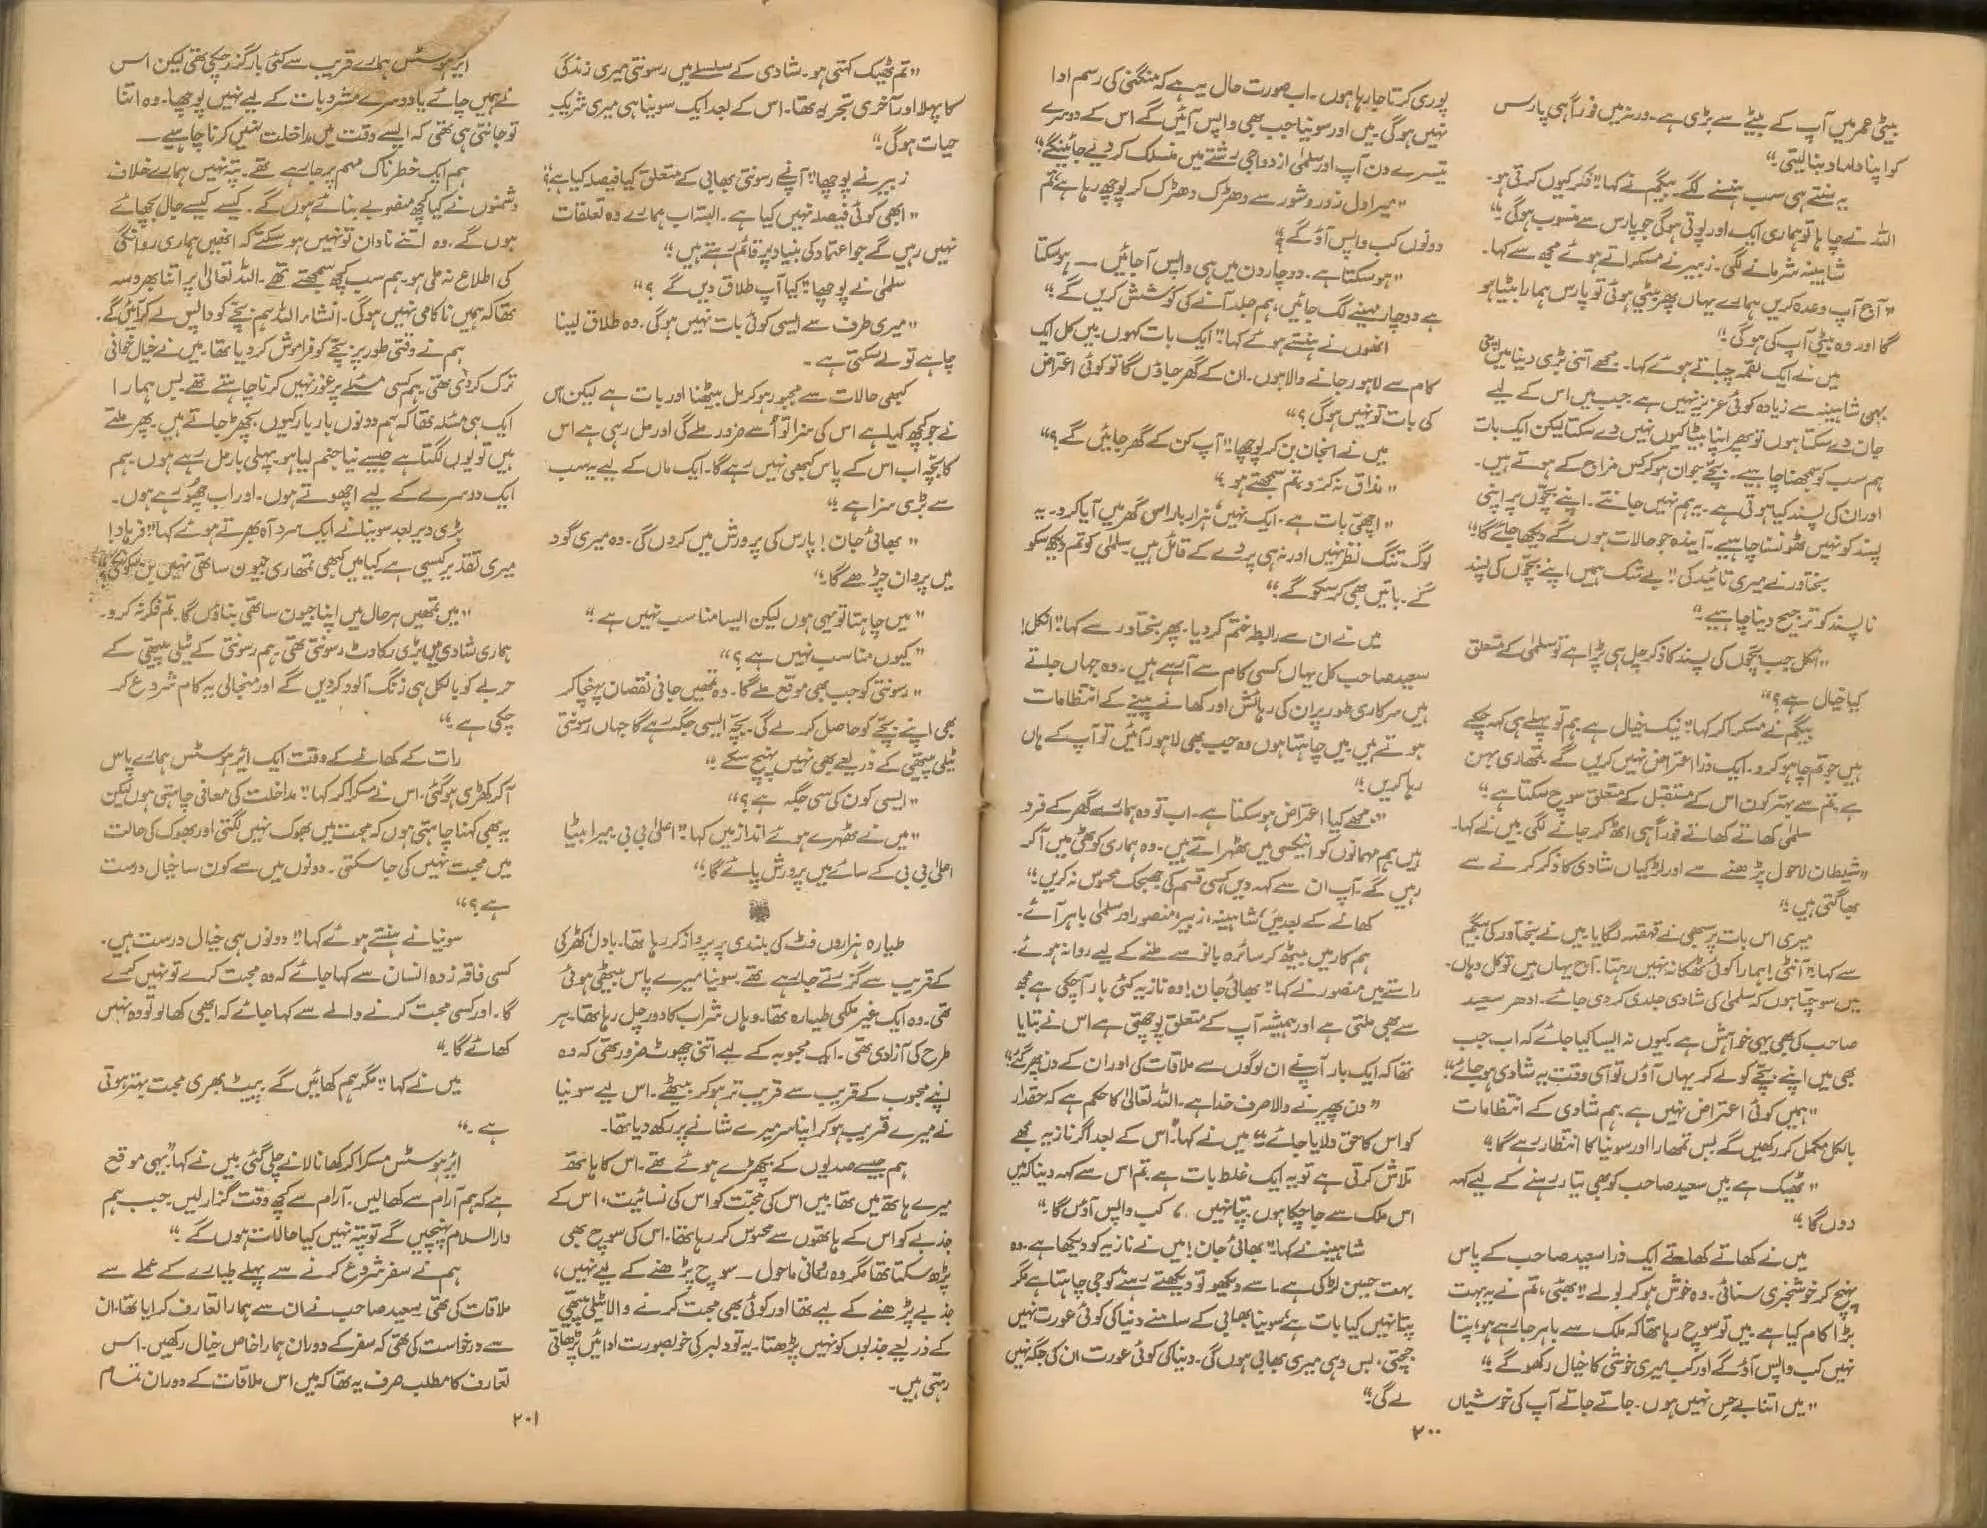 بیٹی عمر میں آپ کے بیٹے سے بڑی ہے۔ ورنہ میں فوراً ہی پارس
کو اپنا داماد بنا لیتی۔"
یہ سنتے ہی سب ہنسنے لگے۔ بیگم نے کہا "فکر کیوں کرتی ہو۔
اللہ نے چاہا تو ہماری ایک اور پوتی ہوگی جو پارس سے منسوب ہوگی۔"
شاہینہ شرمانے لگی۔ زبیر نے مسکراتے ہوئے مجھ سے کہا۔
"آج آپ وعدہ کریں ہمارے یہاں پھر بیٹی ہوئی تو پارس ہمارا بیٹا ہو
گا اور وہ بیٹی آپ کی ہوگی۔"
میں نے ایک لقمہ چباتے ہوئے کہا۔ مجھے اتنی بڑی دنیا میں اپنی
بہن شاہینہ سے زیادہ کوئی عزیز نہیں ہے۔ جب میں اس کے لیے
جان دے سکتا ہوں تو پھر اپنا بیٹا کیوں نہیں دے سکتا لیکن ایک بات
ہم سب کو سمجھنا چاہیے۔ بچے جوان ہو کر کس مزاج کے ہوتے ہیں۔
اور ان کی پسند کیا ہوتی ہے۔ یہ ہم نہیں جانتے۔ اپنے بچوں پر اپنی
پسند کو نہیں ٹھونسنا چاہیے۔ آیندہ جو حالات ہوں گے دیکھا جائے گا۔"
بختاور نے میری تائید کی "بے شک ہمیں اپنے بچوں کی پسند
نا پسند کو ترجیح دینا چاہیے۔"
"انکل جب بچوں کی پسند کا ذکر چل ہی پڑا ہے تو سلمیٰ کے متعلق
کیا خیال ہے؟"
بیگم نے مسکرا کر کہا "نیک خیال ہے ہم تو پہلے ہی کہہ چکے
ہیں جو تم چاہو کرو۔ ایک ذرا اعتراض نہیں کریں گے۔ تمھاری بہن
ہے تم سے بہتر کون اس کے مستقبل کے متعلق سوچ سکتا ہے۔"
سلمیٰ کھاتے کھاتے فوراً ہی اٹھ کر جانے لگی میں نے کہا۔
"شیطان لاحول پڑھنے سے اور لڑکیاں شادی کا ذکر کرنے سے
بھاگتی ہیں۔"
میری اس بات پر سبھی نے قہقہہ لگایا۔ میں نے بختاور کی بیگم
سے کہا "آنٹی! ہمارا کوئی ٹھکانہ نہیں رہتا۔ آج یہاں ہیں تو کل وہاں۔
میں سوچتا ہوں کہ سلمیٰ کی شادی جلدی کر دی جائے۔ ادھر سعید
صاحب کی بھی یہی خواہش ہے کیوں نہ ایسا کیا جائے کہ اب جب
بھی میں اپنے بچے کو لے کر یہاں آؤں تو اسی وقت یہ شادی ہو جائے۔"
"ہمیں کوئی اعتراض نہیں ہے۔ ہم شادی کے انتظامات
بالکل مکمل کر رکھیں گے بس تمھارا اور سونیا کا انتظار رہے گا۔"
"ٹھیک ہے میں سعید صاحب کو بھی تیار رہنے کے لیے کہہ
دوں گا۔"
میں نے کھاتے کھاتے ایک ذرا سعید صاحب کے پاس
پہنچ کر خوشخبری سنائی۔ وہ خوش ہو کر بولے "بھئی، تم نے یہ بہت
بڑا کام کیا ہے۔ میں تو سوچ رہا تھا کہ ملک سے باہر جا رہے ہو، پتا
نہیں کب واپس آؤ گے اور کب میری خوشی کا خیال رکھو گے۔"
"میں اتنا بے حس نہیں ہوں۔ جاتے جاتے آپ کی خوشیاں
پوری کرتا جا رہا ہوں۔ اب صورت حال یہ ہے کہ منگنی کی رسم ادا
نہیں ہوگی۔ میں اور سونیا جب بھی واپس آئیں گے اس کے دوسرے
تیسرے دن آپ اور سلمیٰ ازدواجی رشتے میں منسلک کر دیے جائینگے۔"
"میرا دل زور و شور سے دھڑک دھڑک کر پوچھ رہا ہے تم
دونوں کب واپس آؤ گے؟"
"ہو سکتا ہے۔ دو چار دن میں ہی واپس آ جائیں ـــ ہو سکتا
ہے دو چار مہینے لگ جائیں، ہم جلد آنے کی کوشش کریں گے۔"
انھوں نے ہنستے ہوئے کہا "ایک بات کہوں۔ میں کل ایک
کام سے لاہور جانے والا ہوں۔ ان کے گھر جاؤں گا تو کوئی اعتراض
کی بات تو نہیں ہوگی؟"
میں نے انجان بن کر پوچھا "آپ کن کے گھر جائیں گے؟"
"مذاق نہ کرو، تم سمجھتے ہو۔"
"اچھی بات ہے۔ ایک نہیں، ہزار بار اس گھر میں آیا کرو۔ یہ
لوگ تنگ نظر نہیں اور نہ ہی پردے کے قائل ہیں۔ سلمیٰ کو تم دیکھ سکو
گے۔ باتیں بھی کر سکو گے۔"
میں نے ان سے رابطہ ختم کر دیا۔ پھر بختاور سے کہا "انکل!
سعید صاحب کل یہاں کسی کام سے آ رہے ہیں۔ وہ جہاں جاتے
ہیں سرکاری طور پر ان کی رہائش اور کھانے پینے کے انتظامات
ہوتے ہیں۔ میں چاہتا ہوں وہ جب بھی لاہور آئیں تو آپ کے ہاں
رہا کریں۔"
"مجھے کیا اعتراض ہو سکتا ہے۔ اب تو وہ ہمارے گھر کے فرد
ہیں ہم مہمانوں کو انیکسی میں ٹھہراتے ہیں۔ وہ ہماری کوٹھی میں آ کر
رہیں گے۔ آپ ان سے کہہ دیں کسی قسم کی جھجک محسوس نہ کریں۔"
کھانے کے بعد میں، شاہینہ، زبیر، منصور اور سلمیٰ باہر آئے۔
ہم کار میں بیٹھ کر سائرہ بانو سے ملنے کے لیے روانہ ہوئے۔
راستے میں منصور نے کہا "بھائی جان! وہ نازیہ کئی بار آ چکی ہے مجھ
سے بھی ملتی ہے اور ہمیشہ آپ کے متعلق پوچھتی ہے اس نے بتایا
تھا کہ ایک بار آپ نے ان لوگوں سے ملاقات کی اور ان کے دن پھر گئے۔"
"دن پھیرنے والا صرف خدا ہے۔ اللہ تعالیٰ کا حکم ہے کہ حقدار
کو اس کا حق دلایا جائے۔" میں نے کہا "اس کے بعد اگر نازیہ مجھے
تلاش کرتی ہے تو یہ ایک غلط بات ہے تم اس سے کہہ دینا کہ میں
اس ملک سے جا چکا ہوں۔ پتا نہیں، کب واپس آؤں گا۔"
شاہینہ نے کہا "بھائی جان! میں نے نازیہ کو دیکھا ہے۔ وہ
بہت حسین لڑکی ہے۔ اسے دیکھو تو دیکھتے رہنے کو جی چاہتا ہے مگر
پتا نہیں کیا بات ہے، سونیا بھابی کے سامنے دنیا کی کوئی عورت نہیں
جچتی، بس وہی میری بھابی ہوں گی۔ دنیا کی کوئی عورت ان کی جگہ نہیں
لے گی۔"
۲۰۰
"تم ٹھیک کہتی ہو۔ شادی کے سلسلے میں رسونتی میری زندگی
کا پہلا اور آخری تجربہ تھا۔ اس کے بعد ایک سونیا ہی میری شریک
حیات ہوگی۔"
زبیر نے پوچھا "آپ نے رسونتی بھابی کے متعلق کیا فیصلہ کیا ہے؟
"ابھی کوئی فیصلہ نہیں کیا ہے۔ البتہ اب ہمارے وہ تعلقات
نہیں رہیں گے جو اعتماد کی بنیاد پر قائم رہتے ہیں۔"
سلمیٰ نے پوچھا "کیا آپ طلاق دیں گے؟"
"میری طرف سے ایسی کوئی بات نہیں ہوگی۔ وہ طلاق لینا
چاہے تو لے سکتی ہے۔
کبھی حالات سے مجبور ہو کر مل بیٹھنا اور بات ہے لیکن اس
نے جو کچھ کیا ہے اس کی سزا تو اُسے ضرور ملے گی اور مل رہی ہے اس
کا بچہ اب اس کے پاس کبھی نہیں رہے گا۔ ایک ماں کے لیے یہ سب
سے بڑی سزا ہے۔"
"بھائی جان! پارس کی پرورش میں کروں گی۔ وہ میری گود
میں پروان چڑھے گا۔"
"میں چاہتا تو یہی ہوں لیکن ایسا مناسب نہیں ہے۔"
"کیوں مناسب نہیں ہے؟"
"رسونتی کو جب بھی موقع ملے گا۔ وہ تمھیں جانی نقصان پہنچا کر
بھی اپنے بچے کو حاصل کر لے گی۔ بچہ ایسی جگہ رہے گا جہاں رسونتی
ٹیلی پیتھی کے ذریعے بھی نہیں پہنچ سکے۔"
"ایسی کون سی جگہ ہے؟"
"میں نے ٹھہرے ہوئے انداز میں کہا "اعلیٰ بی بی۔ میرا بیٹا
اعلیٰ بی بی کے سائے میں پرورش پائے گا۔"
طیارہ ہزاروں فٹ کی بلندی پر پرواز کر رہا تھا۔ بادل کھڑکی
کے قریب سے گزرتے جا رہے تھے۔ سونیا میرے پاس بیٹھی ہوئی
تھی۔ وہ ایک غیر ملکی طیارہ تھا۔ وہاں شراب کا دور چل رہا تھا۔ ہر
طرح کی آزادی تھی۔ ایک محبوبہ کے لیے اتنی چھوٹ ضرور تھی کہ وہ
اپنے محبوب کے قریب سے قریب تر ہو کر بیٹھے۔ اس لیے سونیا
نے میرے قریب ہو کر اپنا سر میرے شانے پر رکھ دیا تھا۔
ہم جیسے صدیوں کے بچھڑے ہوئے تھے۔ اس کا ہاتھ
میرے ہاتھ میں تھا۔ میں اس کی محبت کو اس کی نسائیت، اس کے
جذبے کو اس کے ہاتھوں سے محسوس کر رہا تھا۔ اس کی سوچ بھی
پڑھ سکتا تھا مگر وہ رومانی ماحول ـــ سوچ پڑھنے کے لیے نہیں،
جذبے پڑھنے کے لیے تھا اور کوئی بھی محبت کرنے والا ٹیلی پیتھی
کے ذریعے جذبوں کو نہیں پڑھتا۔ یہ تو دلبر کی خوبصورت ادائیں پڑھاتی
رہتی ہیں۔
ایئر ہوسٹس ہمارے قریب سے کئی بار گزر چکی تھی لیکن اس
نے ہمیں چائے یا دوسرے مشروبات کے لیے نہیں پوچھا۔ وہ اتنا
تو جانتی ہی تھی کہ ایسے وقت میں مداخلت نہیں کرنا چاہیے ـــ
ہم ایک خطرناک مہم پر جا رہے تھے۔ پتہ نہیں ہمارے خلاف
دشمنوں نے کیا کچھ منصوبے بنائے ہوں گے۔ کیسے کیسے جال بچھائے
ہوں گے۔ وہ اتنے نادان تو نہیں ہو سکتے کہ انھیں ہماری روانگی
کی اطلاع نہ ملی ہو۔ ہم سب کچھ سمجھتے تھے۔ اللہ تعالیٰ پر اتنا بھروسہ
تھا کہ ہمیں ناکامی نہیں ہوگی۔ انشاء اللہ ہم بچے کو واپس لے کر آئیں گے۔
ہم نے وقتی طور پر بچے کو فراموش کر دیا تھا۔ میں نے خیال خوانی
ترک کر دی تھی۔ ہم کسی مسئلے پر غور نہیں کرنا چاہتے تھے۔ بس ہمارا
ایک ہی مسئلہ تھا کہ ہم دونوں بار بار کیوں بچھڑ جاتے ہیں۔ پھر ملتے
ہیں تو یوں لگتا ہے جیسے نیا جنم لیا ہو۔ پہلی بار مل رہے ہوں۔ ہم
ایک دوسرے کے لیے اچھوتے ہوں۔ اور اب چھو رہے ہوں۔
بڑی دیر بعد سونیا نے ایک سرد آہ بھرتے ہوئے کہا "فرہاد!
میری تقدیر کیسی ہے کیا میں کبھی تمھاری جیون ساتھی نہیں بن سکوں گی؟"
"میں تمھیں ہر حال میں اپنا جیون ساتھی بناؤں گا۔ تم فکر نہ کرو۔
ہماری شادی میں بڑی رکاوٹ رسونتی تھی۔ ہم رسونتی کے ٹیلی پیتھی کے
حربے کو بالکل ہی زنگ آلود کر دیں گے اور منجالی یہ کام شروع کر
چکی ہے۔"
رات کے کھانے کے وقت ایک ایئر ہوسٹس ہمارے پاس
آ کر کھڑی ہو گئی۔ اس نے مسکرا کر کہا "مداخلت کی معافی چاہتی ہوں لیکن
یہ بھی کہنا چاہتی ہوں کہ محبت میں بھوک نہیں لگتی اور بھوک کی حالت
میں محبت نہیں کی جا سکتی۔ دونوں میں سے کون سا خیال درست
ہے؟"
سونیا نے ہنستے ہوئے کہا "دونوں ہی خیال درست ہیں۔
کسی فاقہ زدہ انسان سے کہا جائے کہ وہ محبت کرے تو نہیں کرے
گا۔ اور کسی محبت کرنے والے سے کہا جائے کہ ابھی کھا لو تو وہ نہیں
کھائے گا۔"
میں نے کہا "مگر ہم کھائیں گے۔ پیٹ بھری محبت بہتر ہوتی
ہے۔"
ایئر ہوسٹس مسکرا کر کھانا لانے چلی گئی۔ میں نے کہا "یہی موقع
ہے کہ ہم آرام سے کھا لیں۔ آرام سے کچھ وقت گزار لیں۔ جب ہم
دارالسلام پہنچیں گے تو پتہ نہیں کیا حالات ہوں گے۔"
ہم نے سفر شروع کرنے سے پہلے طیارے کے عملے سے
ملاقات کی تھی۔ سعید صاحب نے ان سے ہمارا تعارف کرایا تھا، ان
سے درخواست کی تھی کہ سفر کے دوران ہمارا خاص خیال رکھیں۔ اس
تعارف کا مطلب صرف یہ تھا کہ میں اس ملاقات کے دوران تمام
۲۰۱